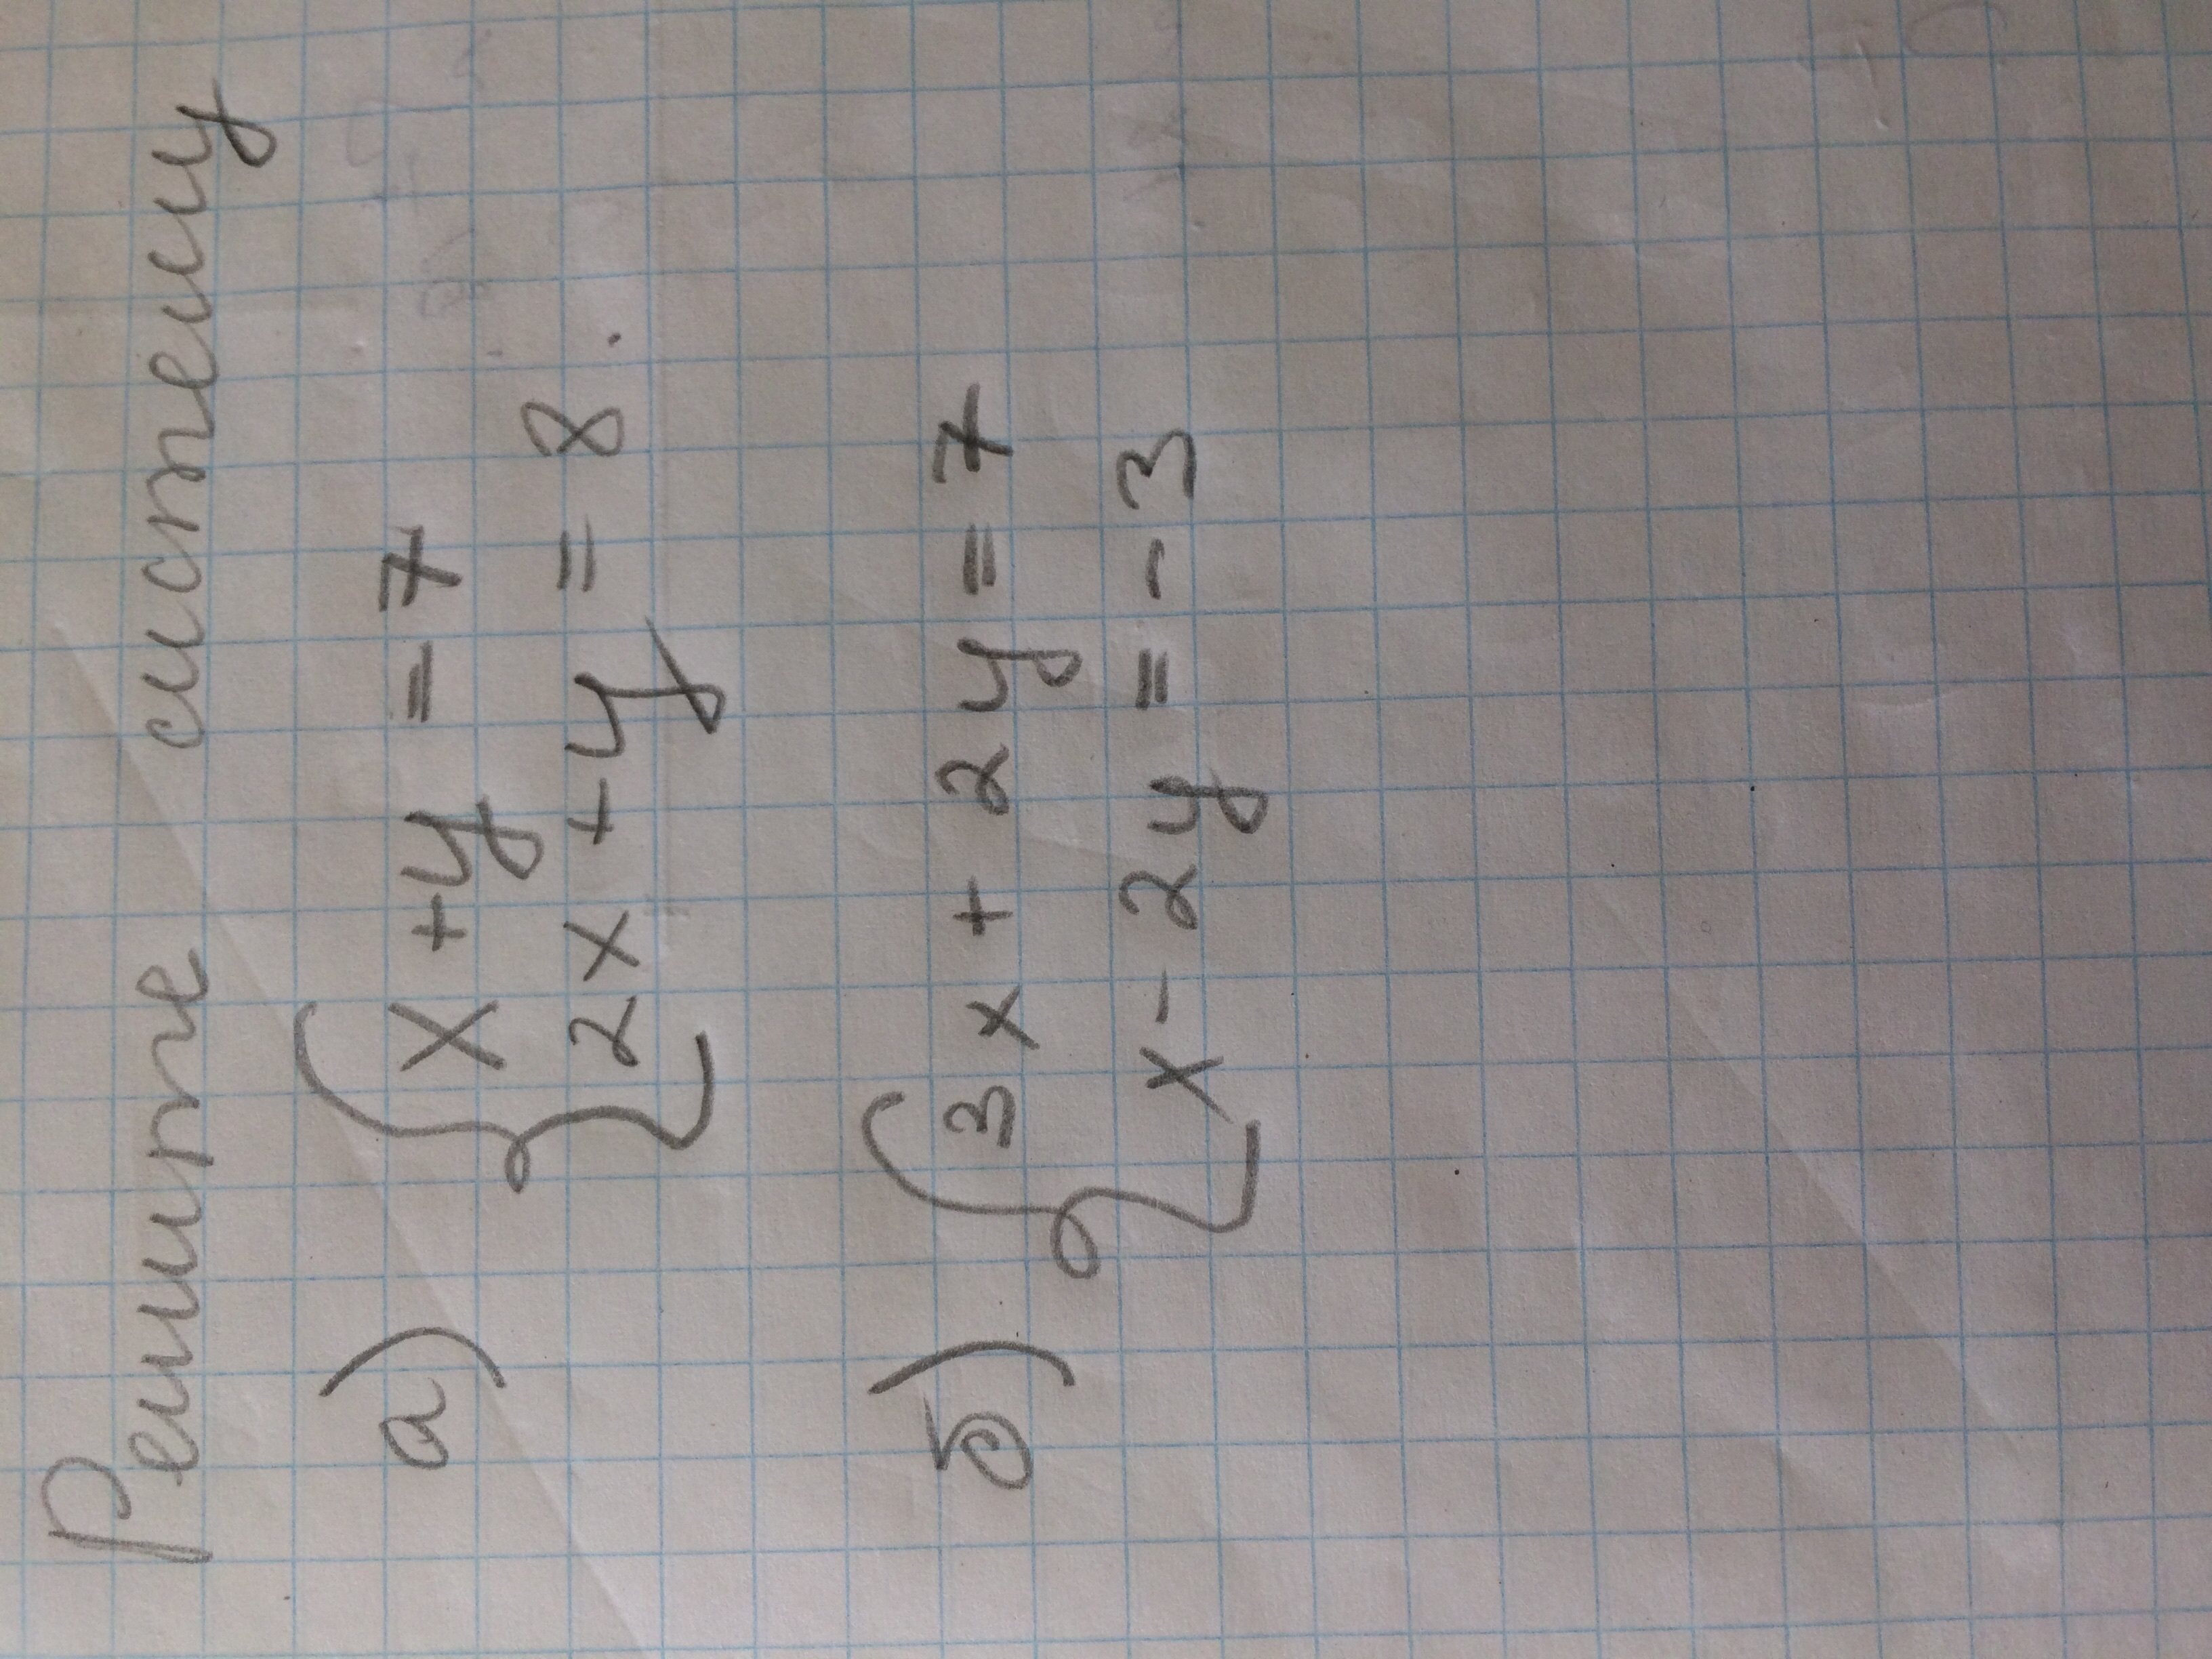 Решите систему
а) { x + y = 7
2x + y = 8.
б) { 3x + 2y = 7
x - 2y = -3